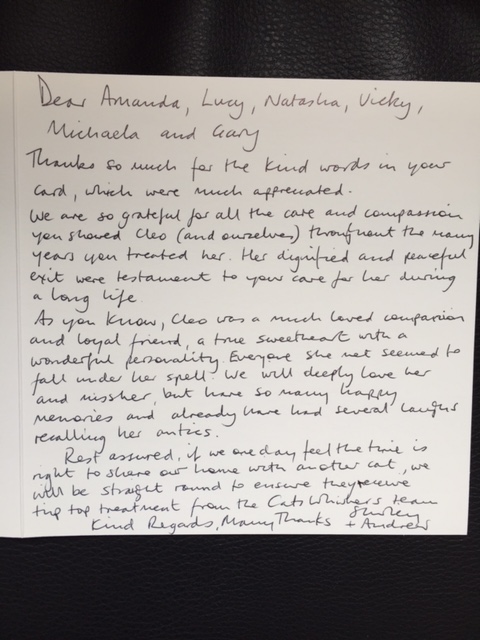 Dear Amanda, Lucy, Natasha, Vicky,
Michaela and Gary
Thanks so much for the kind words in your
card, which were much appreciated.
We are so grateful for all the care and compassion
you showed Cleo (and ourselves) throughout the many
years you treated her. Her dignified and peaceful
exit were testament to your care for her during
a long life.
As you know, Cleo was a much loved companion
and loyal friend, a true sweetheart with a
wonderful personality. Everyone she met seemed to
fall under her spell. We will deeply love her
and miss her, but have so many happy
memories and already have had several laughs
recalling her antics.
Rest assured, if we one day feel the time is
right to share our home with another cat, we
will be straight round to ensure they receive
tip top treatment from the Cats Whiskers team
Kind Regards, Many Thanks Shirley
+ Andrew